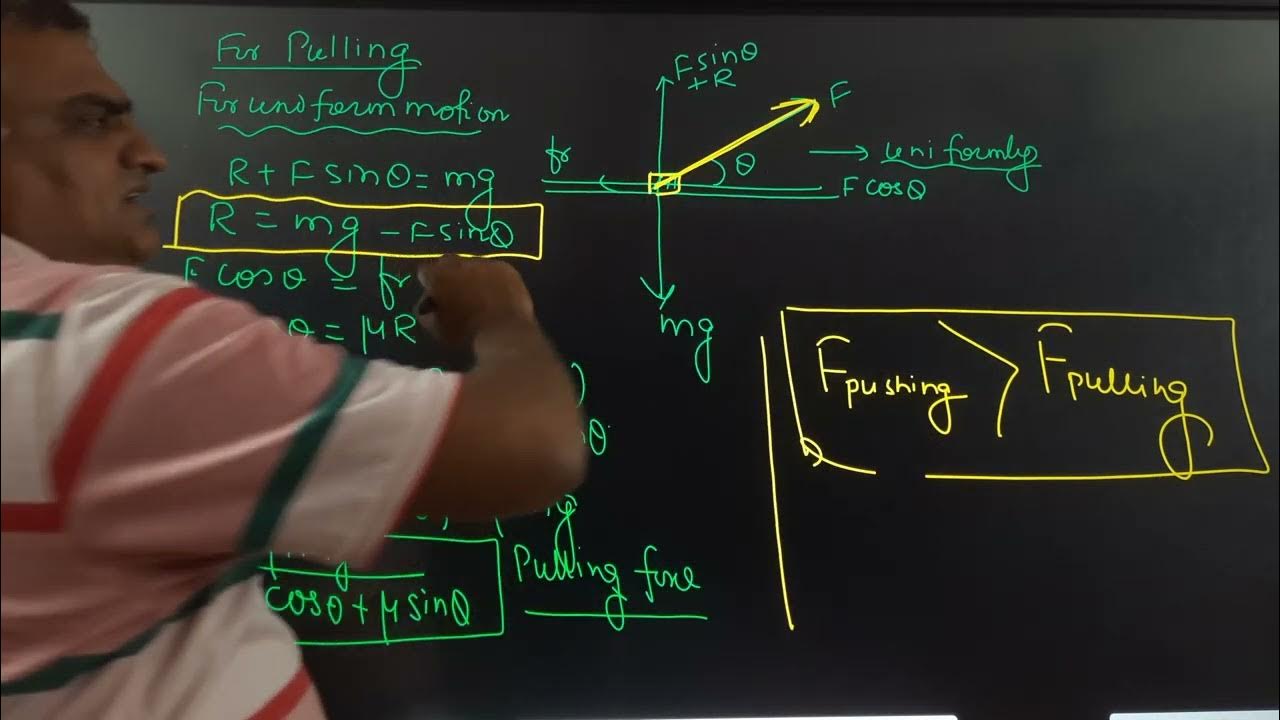 For Pulling
For uniform motion
R + F sinθ = mg
R = mg - F sinθ
F cosθ = fr
θ = μR
)
θ
cosθ + μ sinθ
Pulling force
F sinθ
+ R
F
fr
θ
→ uniformly
F cosθ
mg
F pushing > F pulling